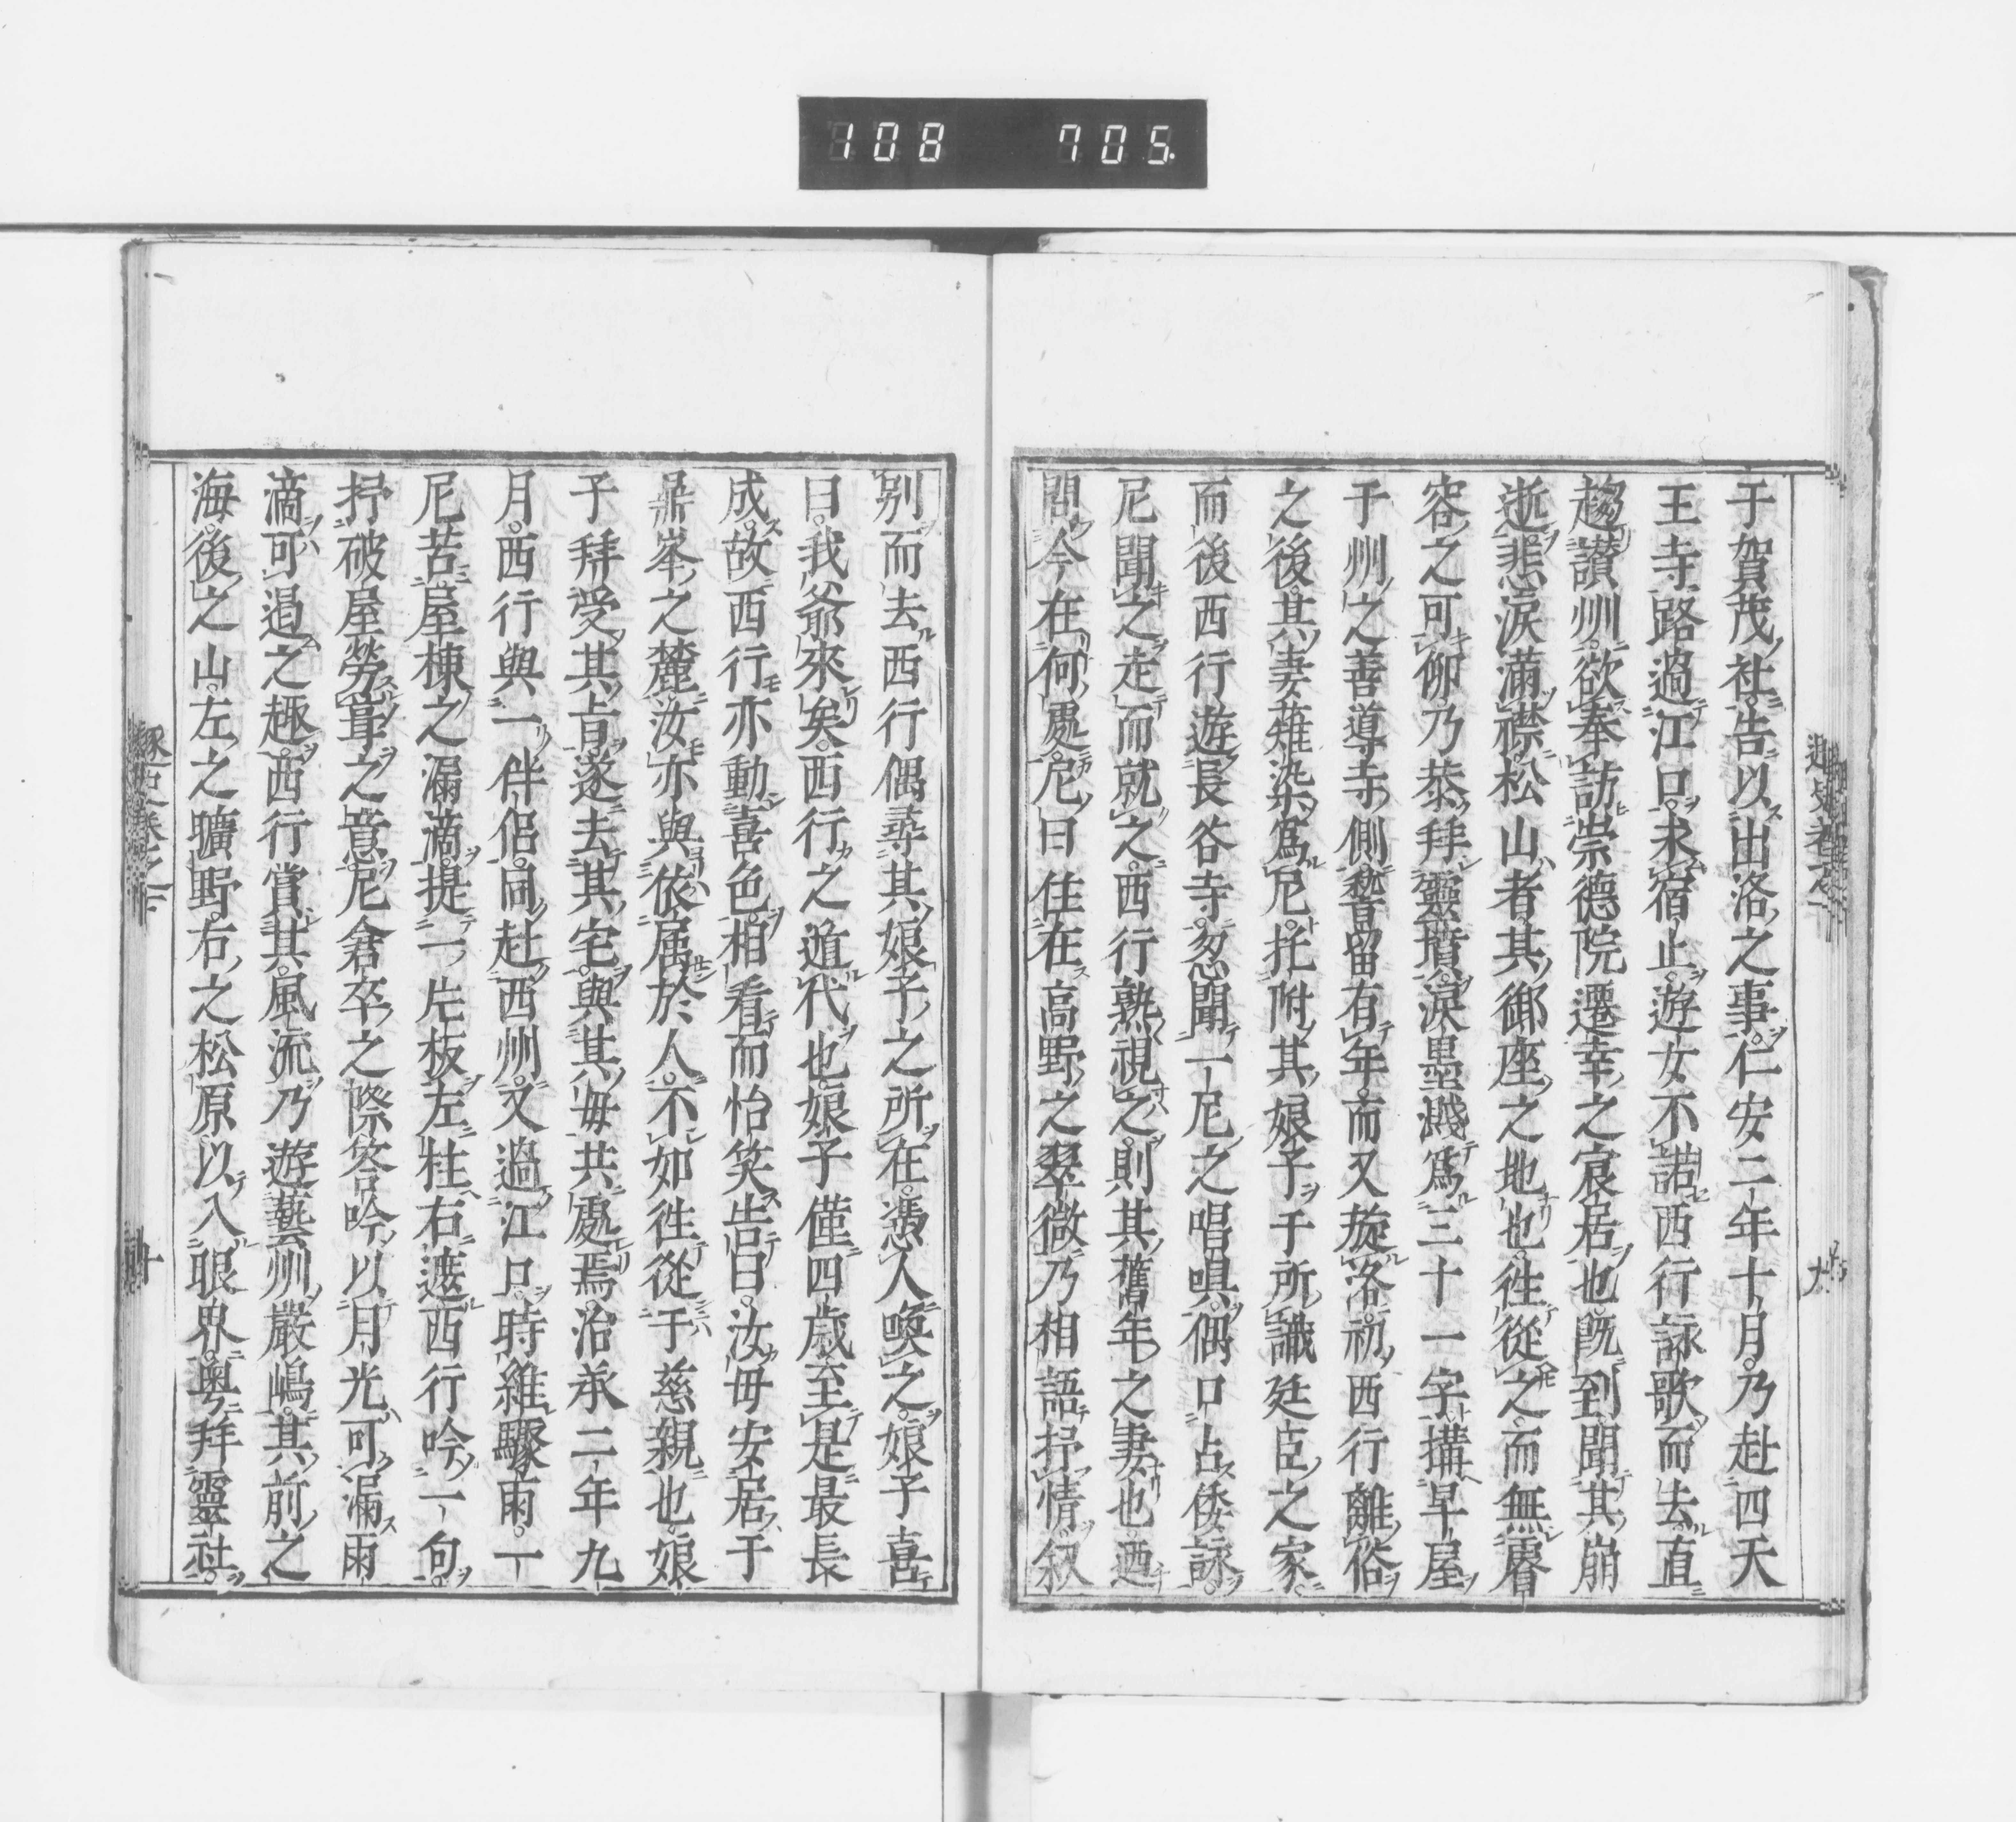 108 705
于賀茂社告以出洛之事仁安二年十月乃赴四天
王寺路過江口未宿止遊女不諾西行詠歌而去直
趨讃州欲奉訪崇德院遷幸之宸居也既到聞其崩
逝悲淚滿襟松山者其御座之地也往從之而無睿
容之可仰乃恭拜靈墳淚墨濺爲三十一字搆早屋
于州之善導寺側暫留有年而又旋洛初西行離俗
之後其妻薙染爲尼托附其娘子于所識廷臣之家
而後西行遊長谷寺忽聞一尼之唱唄偶口占倭詠
尼聞之走而就之西行熟視之則其舊年之妻也迺
問今在何處尼曰住在高野之翠微乃相語抒情叙
別而去西行偶尋其娘子之所在憑人喚之娘子喜
曰我爺來矣西行之遁代也娘子僅四歲至是最長
成故西行亦動喜色相看而怡笑告曰汝毋安居于
鼎峯之麓汝亦與依属於人不如往從于慈親也娘
子拜受其旨遂去其宅與其毋共處焉治承二年九
月西行與一伴侶同赴西州又過江口時維驟雨一
尼苦屋棟之漏滴提一片板左牲右遮西行吟一句
抒破屋勞葺之意尼倉卒之際答吟以月光可漏雨
滴可遏之趣西行賞其風流乃遊藝州嚴嶋其前之
海後之山左之曠野右之松原以入眼界粤拜靈社
十